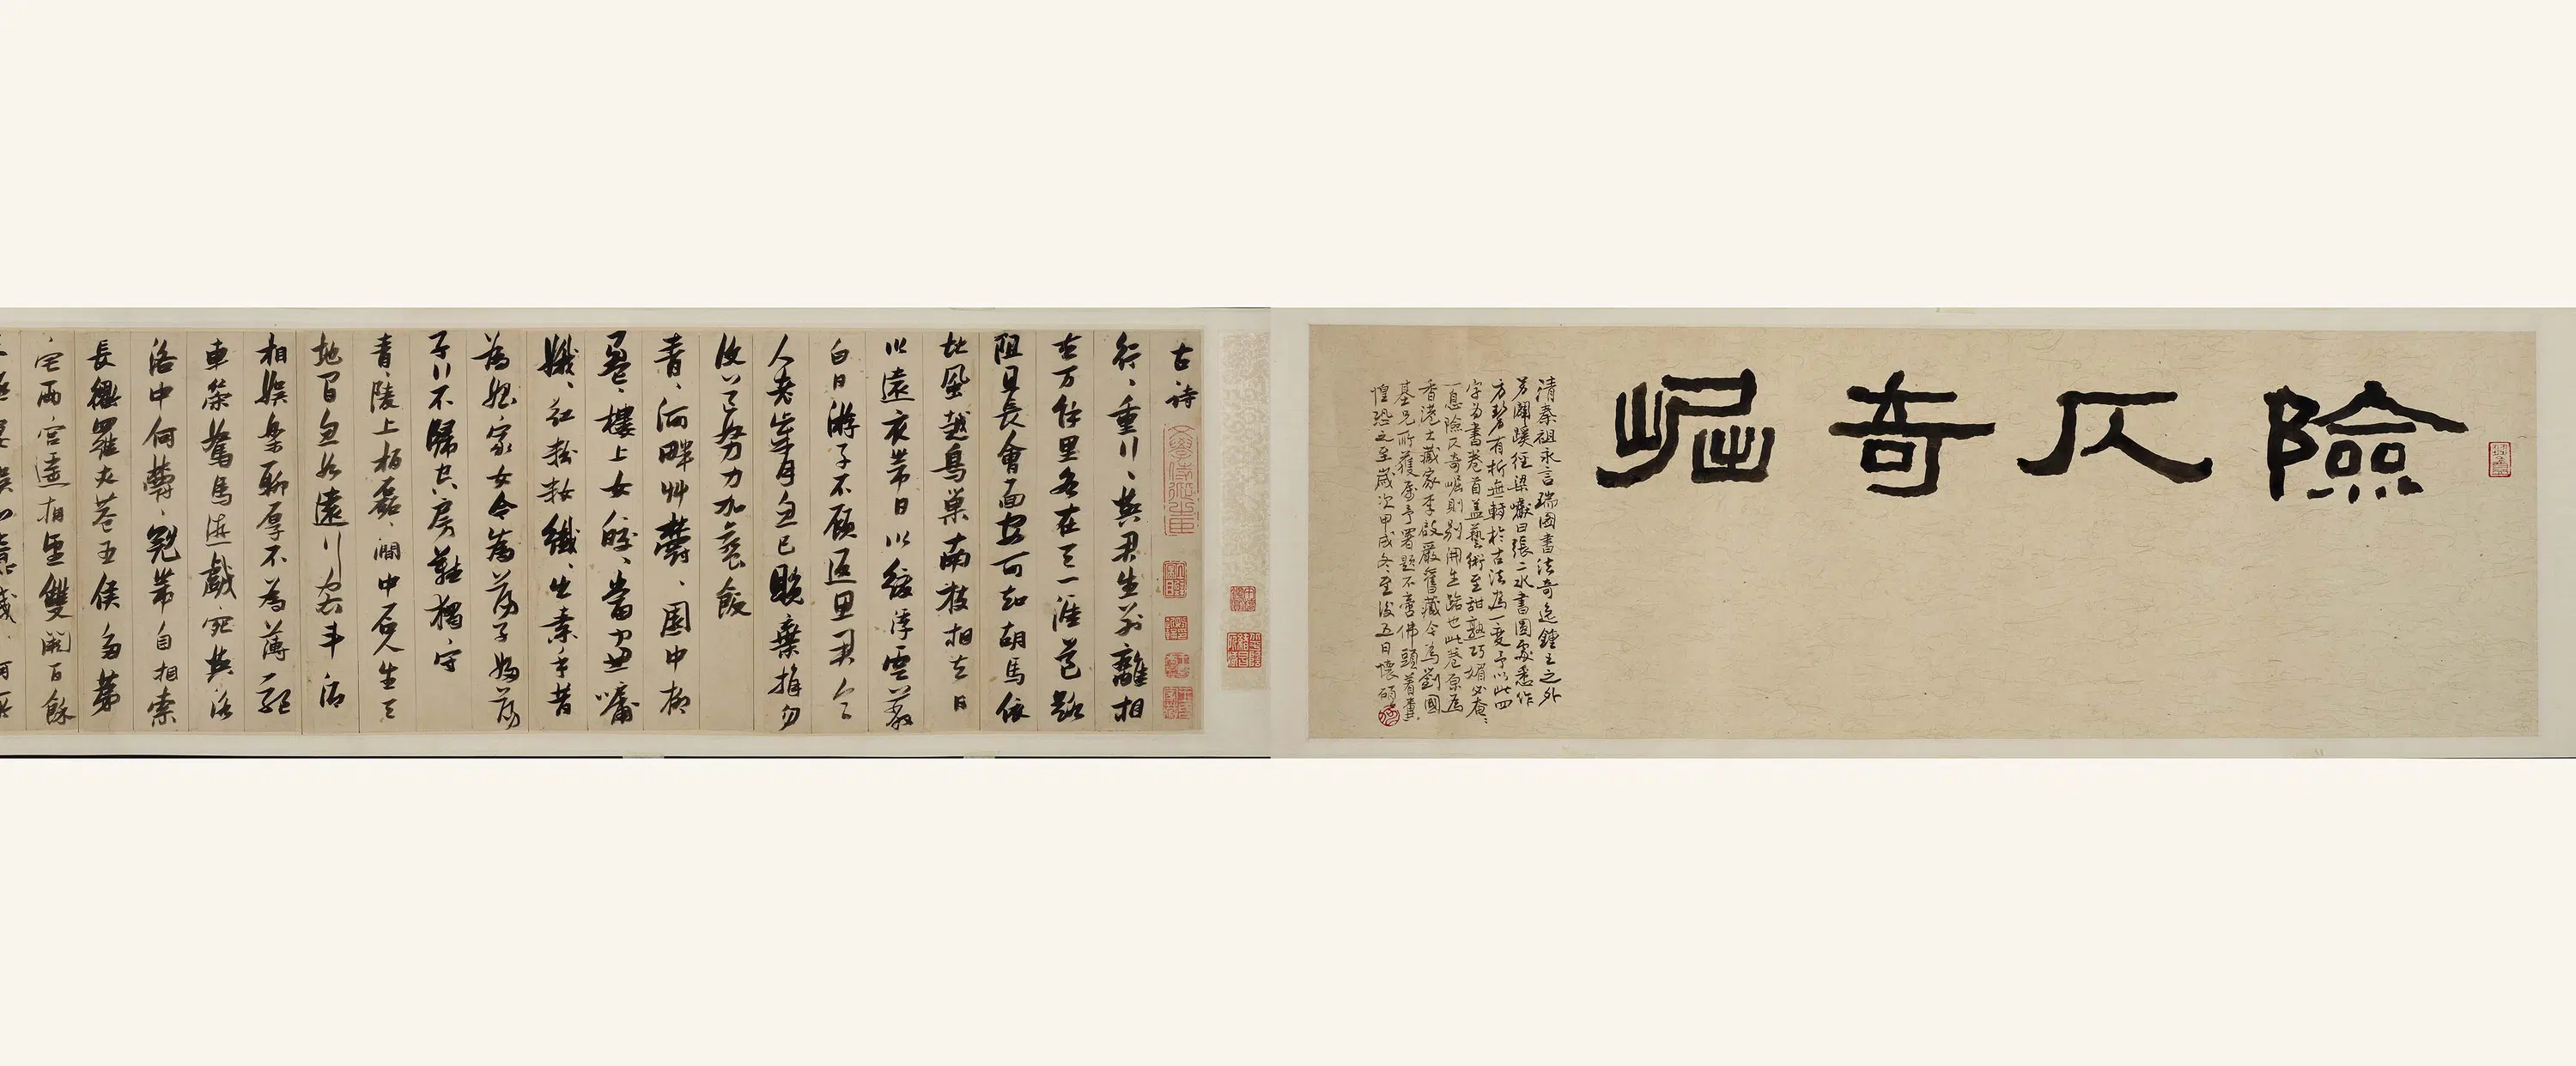 險仄奇崛
清秦祖永言瑞圖書法奇逸鍾王之外
另闢蹊徑梁巘曰張二水書圓處悉作
方勢有折無轉於古法為一變予以此四
字為書卷首蓋藝術至甜熟巧媚必奄〻
一息險仄奇崛則別開生路也此卷原為
香港大藏家李啟嚴舊藏今為劉國
基兄所獲屬予署題不啻佛頭着糞
惶恐之至歲次甲戌冬至後五日懷碩
古詩
行〻重行〻與君生別離相
去万餘里各在天一涯道路
阻且長會面安可知胡馬依
北風越鳥巢南枝相去日
以遠衣帶日以緩浮雲蔽
白日游子不顧返思君令
人老歲月忽已晚棄捐勿
復道努力加餐飯
青〻河畔艸鬱〻園中柳
盈〻樓上女皎〻當窗牖
娥〻紅粉妝纖〻出素手昔
為娼家女今為蕩子婦蕩
子行不歸空房難獨守
青〻陵上栢磊〻澗中石人生天
地間忽如遠行客斗酒
相娛樂聊厚不為薄驅
車策駑馬遊戲宛與洛
洛中何鬱〻冠帶自相索
長衢羅夾巷王侯多第
宅兩宮遙相望雙闕百餘